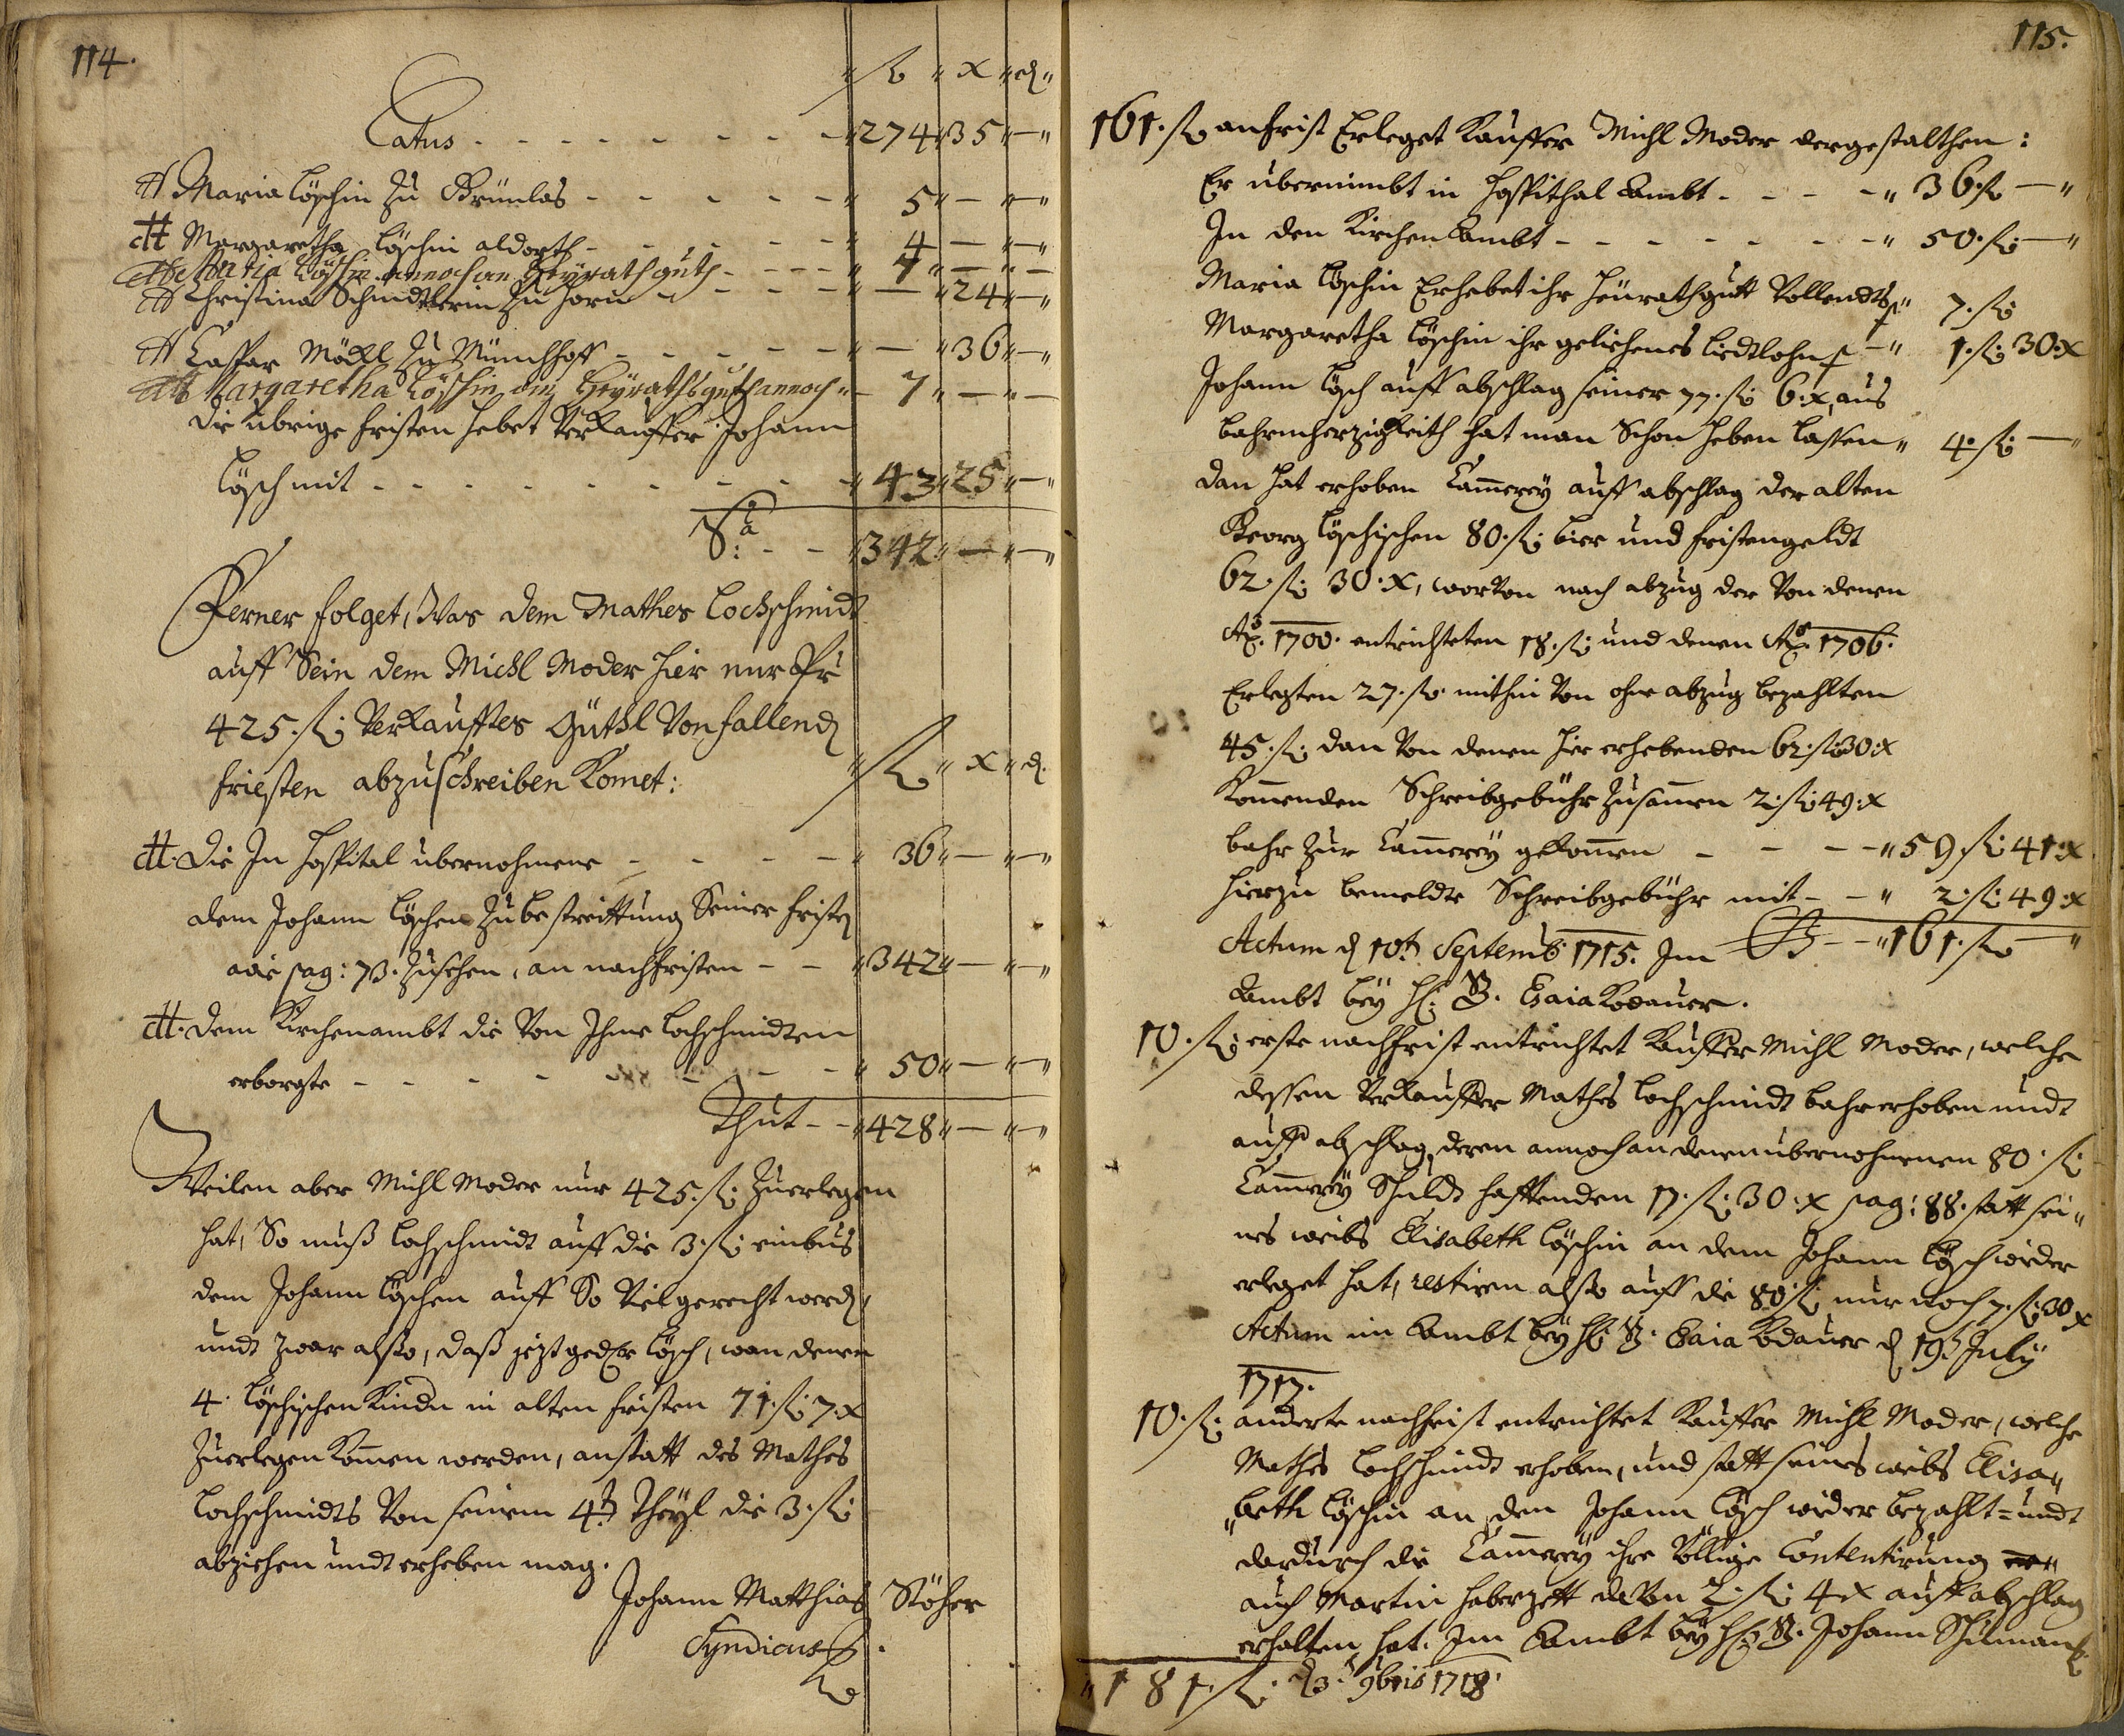 114.
" fl " x " d "
Latus - - - - - - - " 274 " 35 " — "
A Maria Löschin zu Grünlas - - - - - " 5 " — " — "
A Margaretha Löschin aldorth - - - - - " 4 — " — "
A Maria Löschin annoch an Heyrathguth - - - - " 7 " — " —
A Christina Schmidtkerin zu Horn - - - - " — " 24 " — "
A Caspar Möckl zu Münchhoff - - - - - " — " 36 " — "
A Margaretha Löschin an Heyrathsguth annoch " 7 " — " —
Die übrige fristen hebet Verkauffer Johann
Lösch mit - - - - - - - - " 43 " 25 " — "
Sa: - - " 342 " — " — "
Ferner folget, Was dem Mathes Lochschmidt
auff Sein dem Michl Moder hier nur Pr
425. fl Verkaufftes Güthl Vonfallend
friesten abzuschreiben Komet:
" fl " x " d.
A. die In Hospital übernohmene - - - - " 36 " — " — "
dem Johann Löschen zu bestreittung Seiner fristen
wie pag: 73. zusehen, an nachfristen - - " 342 " — " — "
A. dem Kirchenambt die Von Ihme Lochschmidten
erborgte - - - - - - - " 50 " — " — "
Thut - - " 428 " — " — "
Weilen aber Michl Moder nur 425. fl zuerlegen
hat, So muß Lochschmidt auff die 3. fl einbus
dem Johann Löschen auff So Viel gerecht werd,
undt zwar also, daß jeztged. Er Lösch, wan denen
4. Löschischen Kindn in alten fristen 71. fl 7. x
zuerlegen Komen werden, anstatt des Mathes
Lochschmidts Von seinem 4t. Theyl die 3. fl
abziehen undt erheben mag.
Johann Matthias Stöhr
Syndicus
115.
161. fl anfrist Erleget Kauffer Michl Moder dergestalthen:
Er übernimbt in Hospithal Ambt - - - - " 36. fl — "
In den Kirchen Ambt - - - - - - - - " 50. fl — "
Maria Löschin Erhebet ihr Heürathgutt Vollendts " 7. fl
Margaretha Löschin ihr geliehenes Liedtlohn - " 1. fl 30. x
Johann Lösch auff abschlag seiner 77. fl 6. x, aus
bahrmherzigkeith hat man Schon heben lassen " 4. fl — "
dan hat erhoben Cammerey auff abschlag der alten
Georg Löschischen 80. fl bier und fristengeldt
62. fl 30. x, worVon nach abzug der Von denen
Ao. 1700. entrichteten 18. fl und denen Ao. 1706.
Erlegten 27. fl mithin Von ohne abzug bezahlten
45. fl dan Von denen hier erhebenden 62. fl 30. x
Komenden Schreibgebühr zusamen 2. fl 49. x
bahr zur Cammerey gekomen - - - - " 59 fl 41. x
hierzu bemeldte Schreibgebühr mit - - " 2. fl 49. x
Actum d 10t. Septemb. 1715. Im - - " 161. fl — "
Ambt bey H. B. Esaia Kodauer.
10. fl erste nachfrist entrichtet Kauffer Michl Moder, welche
dessen Verkauffer Mathes Lochschmidt bahr erhoben undt
auff abschlag deren annoch an denen übernohmenen 80. fl
Cammerey Schuldt hafftenden 17. fl 30. x pag: 88. statt sei"
nes weibs Elisabeth Löschin an dem Johann Lösch wieder
erleget hat, restiren also auff die 80 fl nur noch 7. fl 30 x
Actum im Ambt bey H. B. Esaia Kodauer d 19t July
1717.
10. fl anderte nachfrist entrichtet Kauffer Michl Moder, welche
Mathes Lochschmidt erhoben, und statt seines weibs Elisa"
"beth Löschin an dem Johann Lösch wieder bezahlt = undt
dardurch die Cammerey ihre Völlige Contentirung
auch Martin Haberzett deVon 2. fl 4 x auff abschlag
erhalten hat. Im Ambt bey H. B. Johann Schüman
" 181. fl. d 3. 9bris 1718.